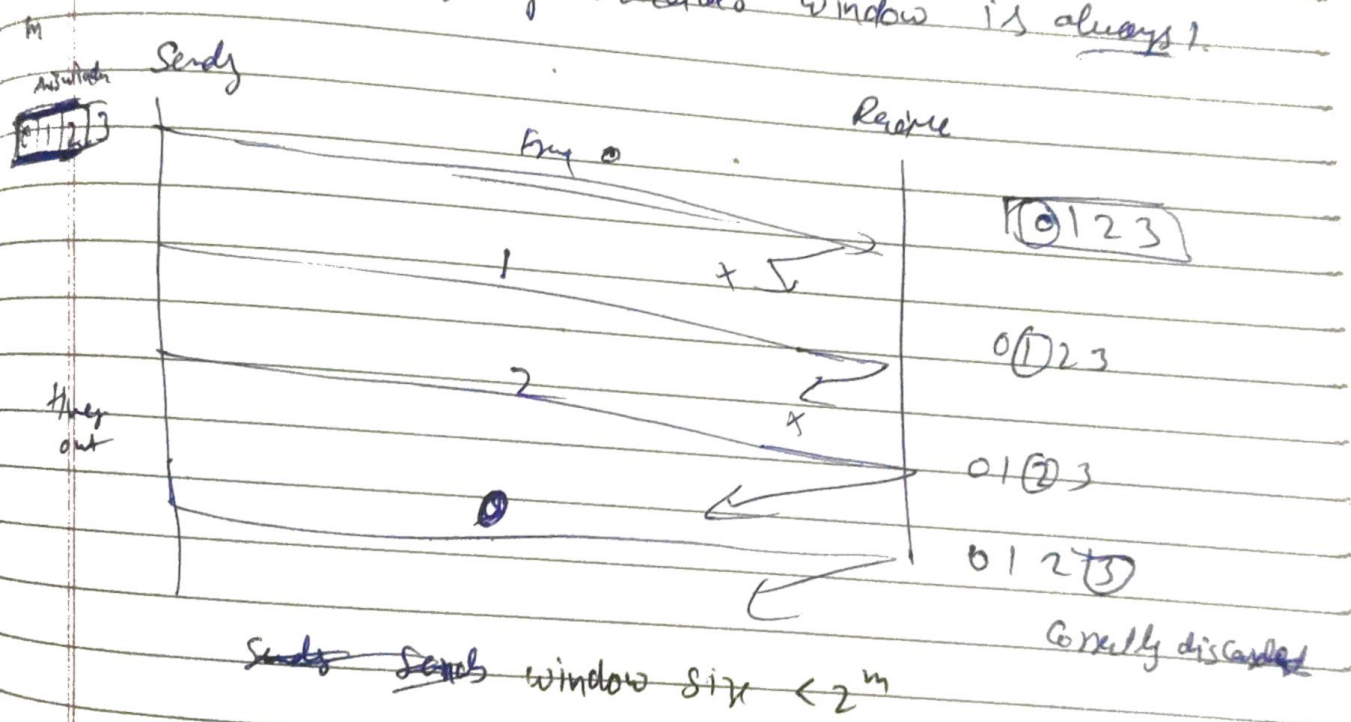 window is always 1.
m
Sender
Receive
0 1 2 3
0
0 1 2 3
1
0 1 2 3
2
Time
out
0 1 2 3
0
0 1 2 3
Correctly discarded
window size < 2^m